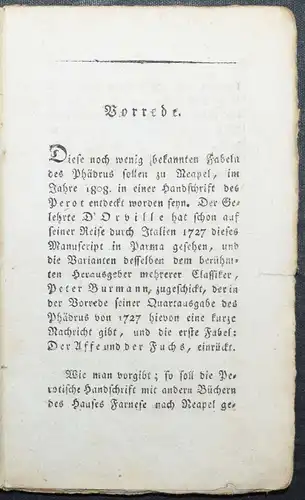 Vorrede.
Diese noch wenig bekannten Fabeln
des Phädrus sollen zu Neapel, im
Jahre 1808. in einer Handschrift des
Perot entdeckt worden seyn. Der Ge-
lehrte D'Orville hat schon auf
seiner Reise durch Italien 1727 dieses
Manuscript in Parma gesehen, und
die Varianten desselben dem berühm-
ten Herausgeber mehrerer Classiker,
Peter Burmann, zugeschickt, der in
der Vorrede seiner Quartausgabe des
Phädrus von 1727 hievon eine kurze
Nachricht gibt, und die erste Fabel:
Der Affe und der Fuchs, einrückt.
Wie man vorgibt; so soll die Pe-
rotische Handschrift mit andern Büchern
des Hauses Farnese nach Neapel ge-